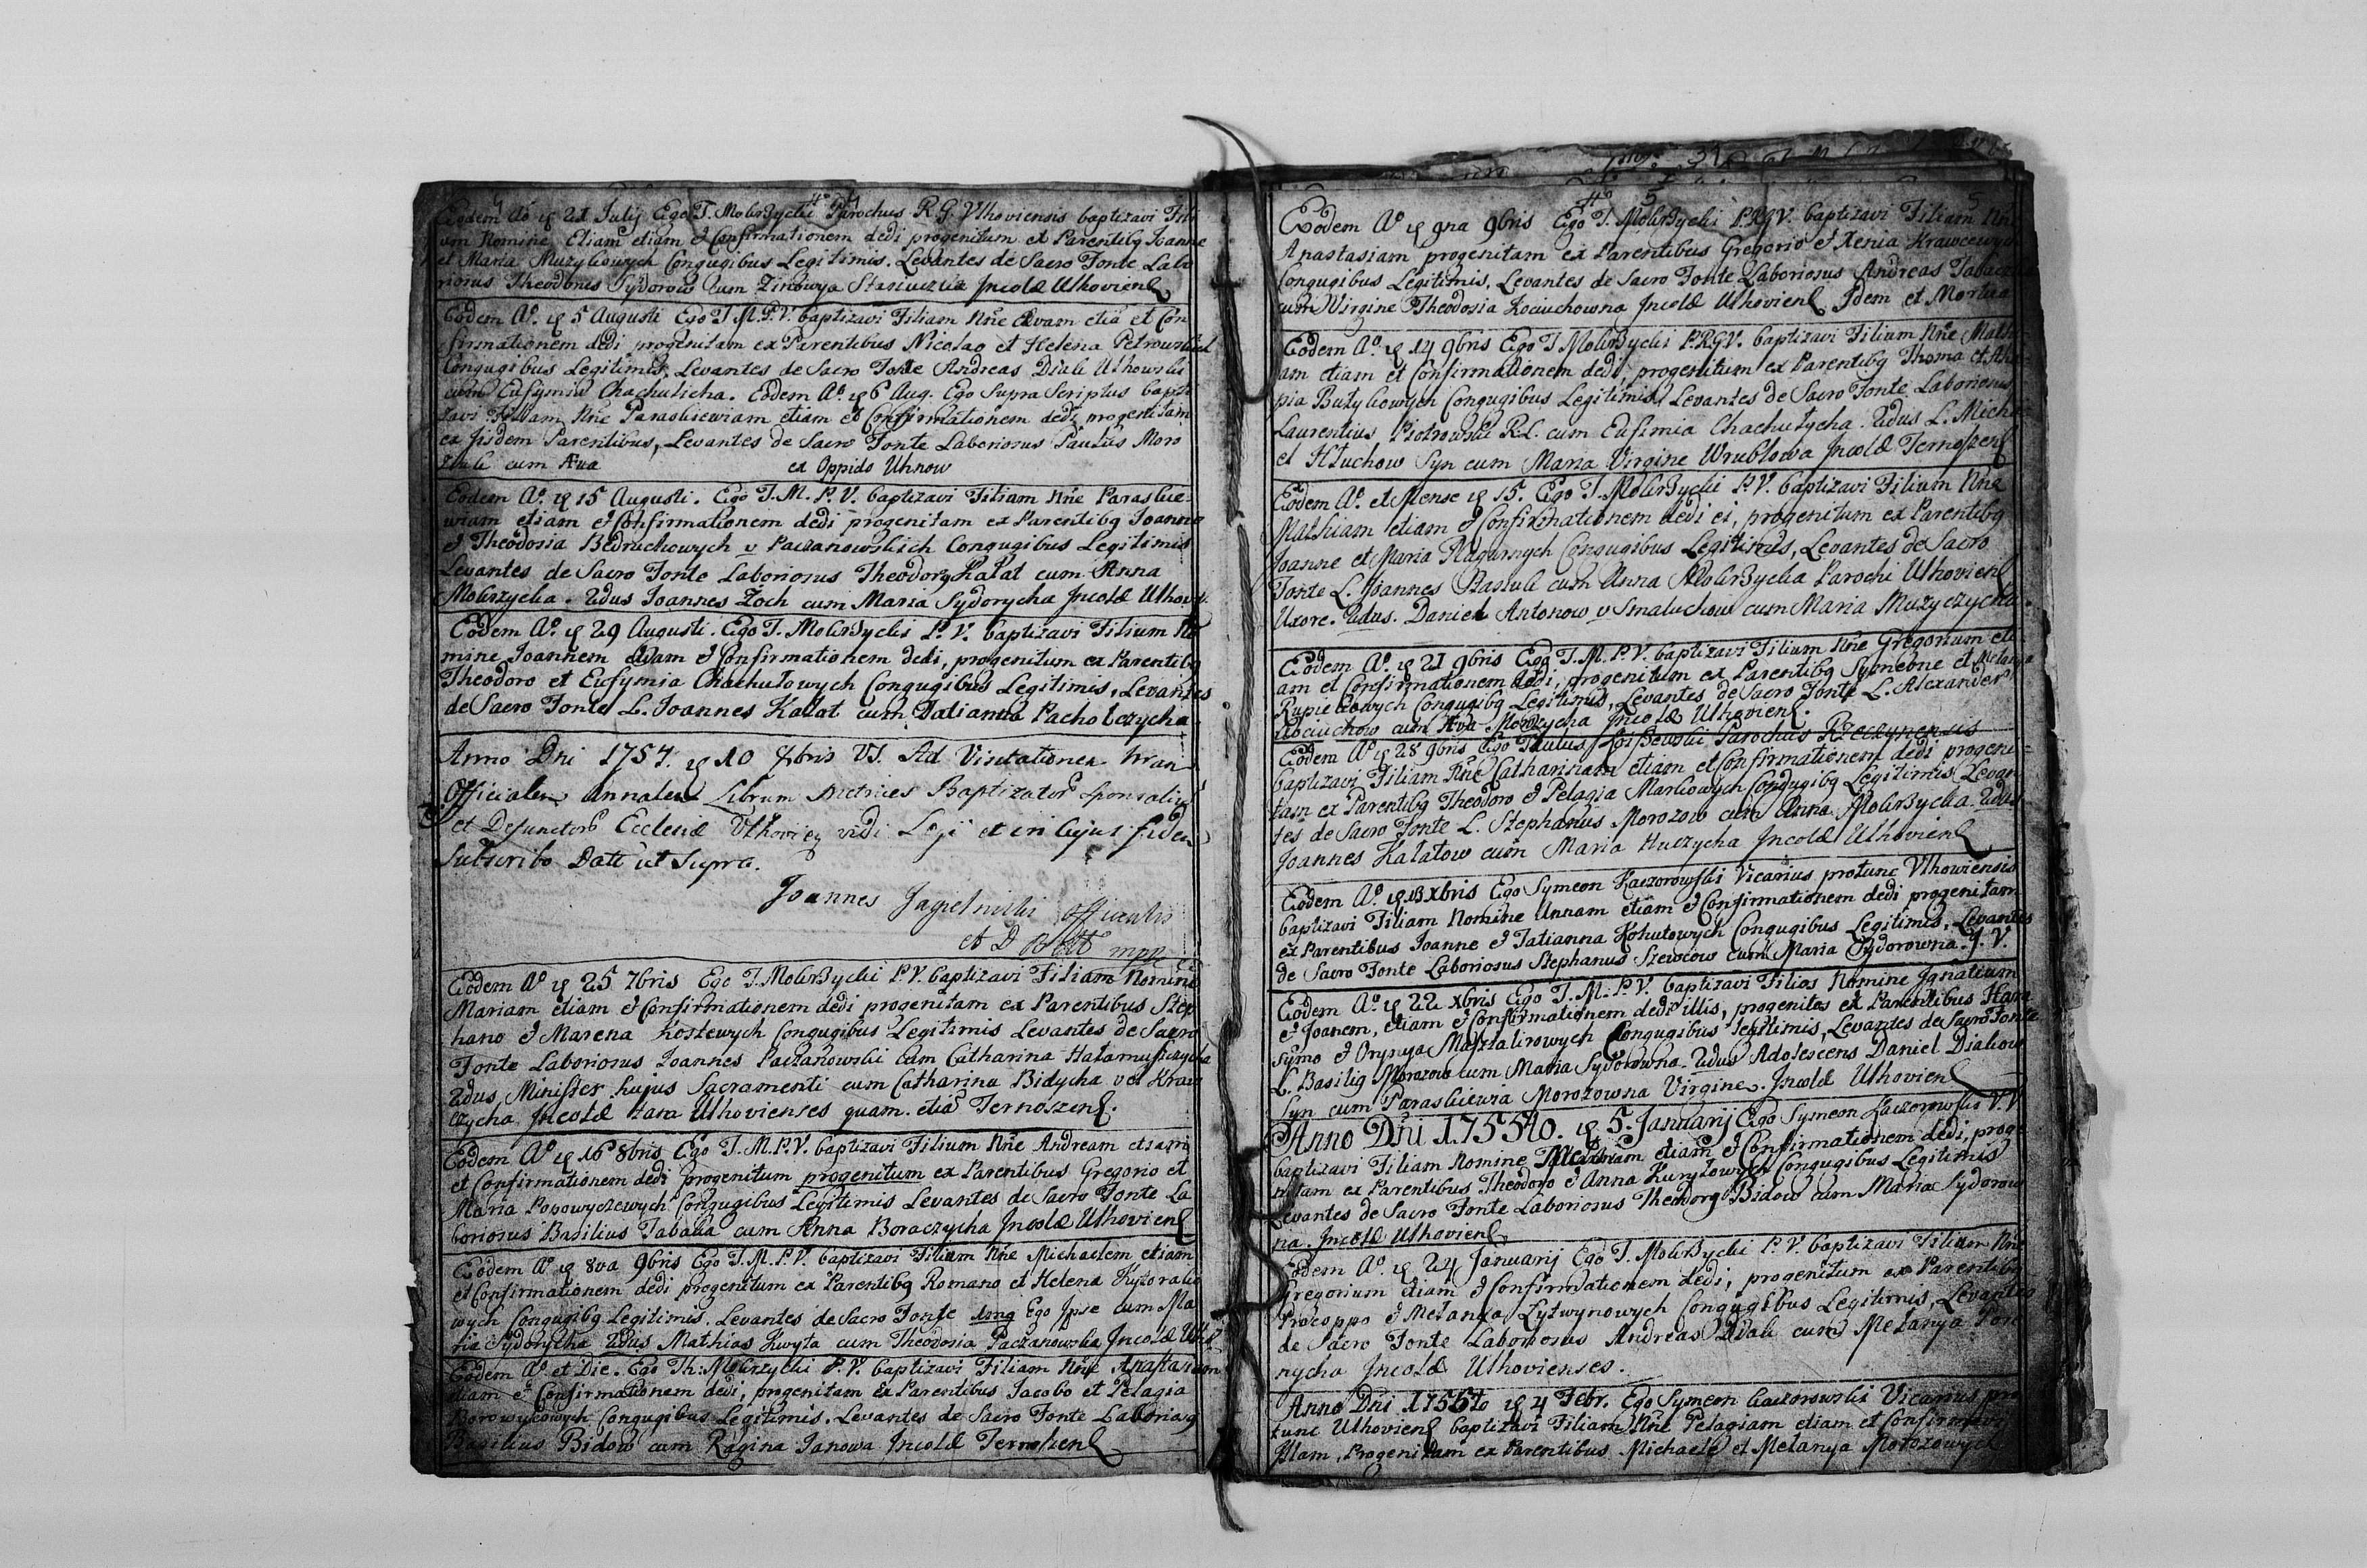 4to 4
Eodem Ao. 21 Julij Ego T. Mokrzycki Parochus R. G. Uhoviensis baptizavi Fili
um Nomine Eliam etiam et Confirmationem dedi progenitum ex Parentibq Joanne
et Maria Muzykowych Conjugibus Legitimis. Levantes de Sacro Fonte Labo
riosus Theodorus Sydorow cum Zinowya Incolæ Uhoviens
Eodem Ao. 5 Augusti Ego T. M. P. V. baptizavi Filiam Nne Evam etiã et Con
firmationem dedi progenitam ex Parentibus Nicolao et Helena
Conjugibus Legitimis, Levantes de Sacro Fonte Andreas Diak Uhowski
cum Eufymia Chachulicha. Eodem Ao. 6 Aug. Ego Supra Scriptus bapti
zavi Filiam Nne Paraskiewiam etiam et Confirmationem dedi progenitam
ex Jisdem Parentibus, Levantes de Sacro Fonte Laboriosus Paulus Moro
cum Æva ex Oppido Uhnow
Eodem Ao. 15 Augusti. Ego T. M. P. V. baptizavi Filiam Nne Paraskie
wiam etiam et Confirmationem dedi progenitam ex Parentibq Joanne
et Theodosia Bedruchowych v Paczanowskich Conjugibus Legitimis
Levantes de Sacro Fonte Laboriosus Theodorq Kałat cum Anna
Mokrzycka. 2dus Joannes Zoch cum Maria Sydorycha Incolæ Uhov.
Eodem Ao. 29 Augusti. Ego T. Mokrzycki P. V. baptizavi Filium No
mine Joannem etiam et Confirmationem dedi, progenitum ex Parentibq
Theodoro et Eufymia Chachułowych Conjugibus Legitimis, Levantes
de Sacro Fonte L. Joannes Kałat cum Tatianna Pacholczycha
Anno Dni 1754. 10 7bris VS. Ad Visitationem
Officialem Annalem Librum Metrices Baptizator Sponsaliu
et Defunctor Ecclesiæ Uhovien vidi Legi et in hujus fidem
Subscribo Datt ut Supra.
Joannes Jagielnicki Officialis
et D mpp
Eodem Ao 25 7bris Ego T. Mokrzycki P. V. baptizavi Filiam Nomine
Mariam etiam et Confirmationem dedi progenitam ex Parentibus Step
hano et Marena Kostewych Conjugibus Legitimis Levantes de Sacro
Fonte Laboriosus Joannes Paczanowski cum Catharina
2dus Minister hujus Sacramenti cum Catharina Bidycha vel Kraw
czycha Incolæ tam Uhovienses quam etiã Ternoszens.
Eodem Ao 16 8bris Ego T. M. P. V. baptizavi Filium Nne Andream etiam
et Confirmationem dedi progenitum progenitum ex Parentibus Gregorio et
Maria Popowyczewych Conjugibus Legitimis Levantes de Sacro Fonte La
boriosus Basilius Tabaka cum Anna Boraczycha Incolæ Uhoviens
Eodem Ao 8va 9bris Ego T. M. P. V. baptizavi Filium Nne Michaelem etiam
et Confirmationem dedi progenitum ex Parentibq Romano et Helena
wych Conjugibq Legitimis. Levantes de Sacro Fonte 1mq Ego Ipse cum Ma
ria Sydorycha 2dus Mathias Kwyta cum Theodosia Paczanowska Incolæ
Eodem Ao et Die. Ego Th: Mokrzycki P. V. baptizavi Filiam Nne Anastasiam
etiam et Confirmationem dedi, progenitam ex Parentibus Jacobo et Pelagia
Borowykowych Conjugibus Legitimis. Levantes de Sacro Fonte
Basilius Bidow cum Ragina Janowa Incolæ Ternoszens
4to 5
5
Eodem Ao 9na 9bris Ego T. Mokrzycki P.R.G.V. baptizavi Filiam Nne
Anastasiam progenitam ex Parentibus Gregorio et Xenia Krawcewych
Conjugibus Legitimis, Levantes de Sacro Fonte Laboriosus Andreas
cum Virgine Theodosia Kociuchowna Incolæ Uhoviens Idem et Mortua
Eodem Ao. 14 9bris Ego T Mokrzycki P.R.G.V. baptizavi Filium Nne
am etiam et Confirmationem dedi, progenitum ex Parentibq Thoma et
pia Butykowych Conjugibus Legitimis, Levantes de Sacro Fonte Laboriosus
Laurentius Piotrowski R.L. cum Eufimia Chachułycha. 2dus L. Micha
el Hłuchow Syn cum Maria Virgine Wrublowa Incolæ Ternoszens
Eodem Ao. et Mense 15. Ego T. Mokrzycki P. V. baptizavi Filium Nne
Mathiam etiam et Confirmationem dedi ei, progenitum ex Parentibq
Joanne et Maria Conjugibus Legitimis, Levantes de Sacro
Fonte L. Joannes cum Anna Mokrzycka Parochi Uhoviens
Uxore. 2dus. Daniel Antonow v Smaluchow cum Maria Muzyczycha.
Eodem Ao. 21 9bris Ego T. M. P. V. baptizavi Filium Nne Gregorium eti
am et Confirmationem dedi, progenitum ex Parentibq Symeone et Melanya
Conjugibq Legitimis, Levantes de Sacro Fonte L. Alexander
Kociuchow cum Æva Incolæ Uhoviens.
Eodem Ao 28 9bris Ego Paulus Parochus Rzeczynensis
baptizavi Filiam Nne Catharinam etiam et Confirmationem dedi progeni
tam ex Parentibq Theodoro et Pelagia Markowych Conjugibq Legitimis Levan
tes de Sacro Fonte L. Stephanus Morozow cum Anna Mokrzycka. 2dus
Joannes Kałatow cum Maria Huczycha Incolæ Uhoviens
Eodem Ao. 13 Xbris Ego Symeon Kaczorowski Vicarius protunc Uhowiensis
baptizavi Filiam Nomine Annam etiam et Confirmationem dedi progenitam
ex Parentibus Joanne et Tatianna Kohutowych Conjugibus Legitimis. Levantes
de Sacro Fonte Laboriosus Stephanus Szewcow cum Maria Sydorowna. J. V.
Eodem Ao. 22 Xbris Ego T. M. P. V. baptizavi Filios Nomine Ignatium
et Joanem, etiam et Confirmationem dedi illis, progenitos ex Parentibus
Symo et Orynya Masztalirowych Conjugibus Legitimis, Levantes de Sacro Fonte
L. Basiliq Morozow cum Maria Sydorowna. 2dus Adolescens Daniel Diakow
Syn cum Paraskiewia Morozowna Virgine. Incolæ Uhoviens
Anno Dni 1755to. 5. Januarij Ego Symeon Kaczorowski V. V.
baptizavi Filiam Nomine etiam et Confirmationem dedi, proge
nitam ex Parentibus Theodoro et Anna Kuryłowych Conjugibus Legitimis
Levantes de Sacro Fonte Laboriosus Theodorq Bidow cum Maria Sydorow
na. Incolæ Uhoviens
Eodem Ao. 24 Januarij Ego T. Mokrzycki P. V. baptizavi Filium Nne
Gregorium etiam et Confirmationem dedi, progenitum ex Parentibq
Procoppo et Melanya Łytwynowych Conjugibus Legitimis, Levantes
de Sacro Fonte Laboriosus Andreas Diak cum Melanya
nycha Incolæ Uhovienses.
Anno Dni 1755to 4 Febr. Ego Symeon Kaczorowski Vicarius pro
tunc Uhoviens baptizavi Filiam Nne Pelagiam etiam et Confirmavi
Illam, Progenitam ex Parentibus Michaele et Melanya Morozowych